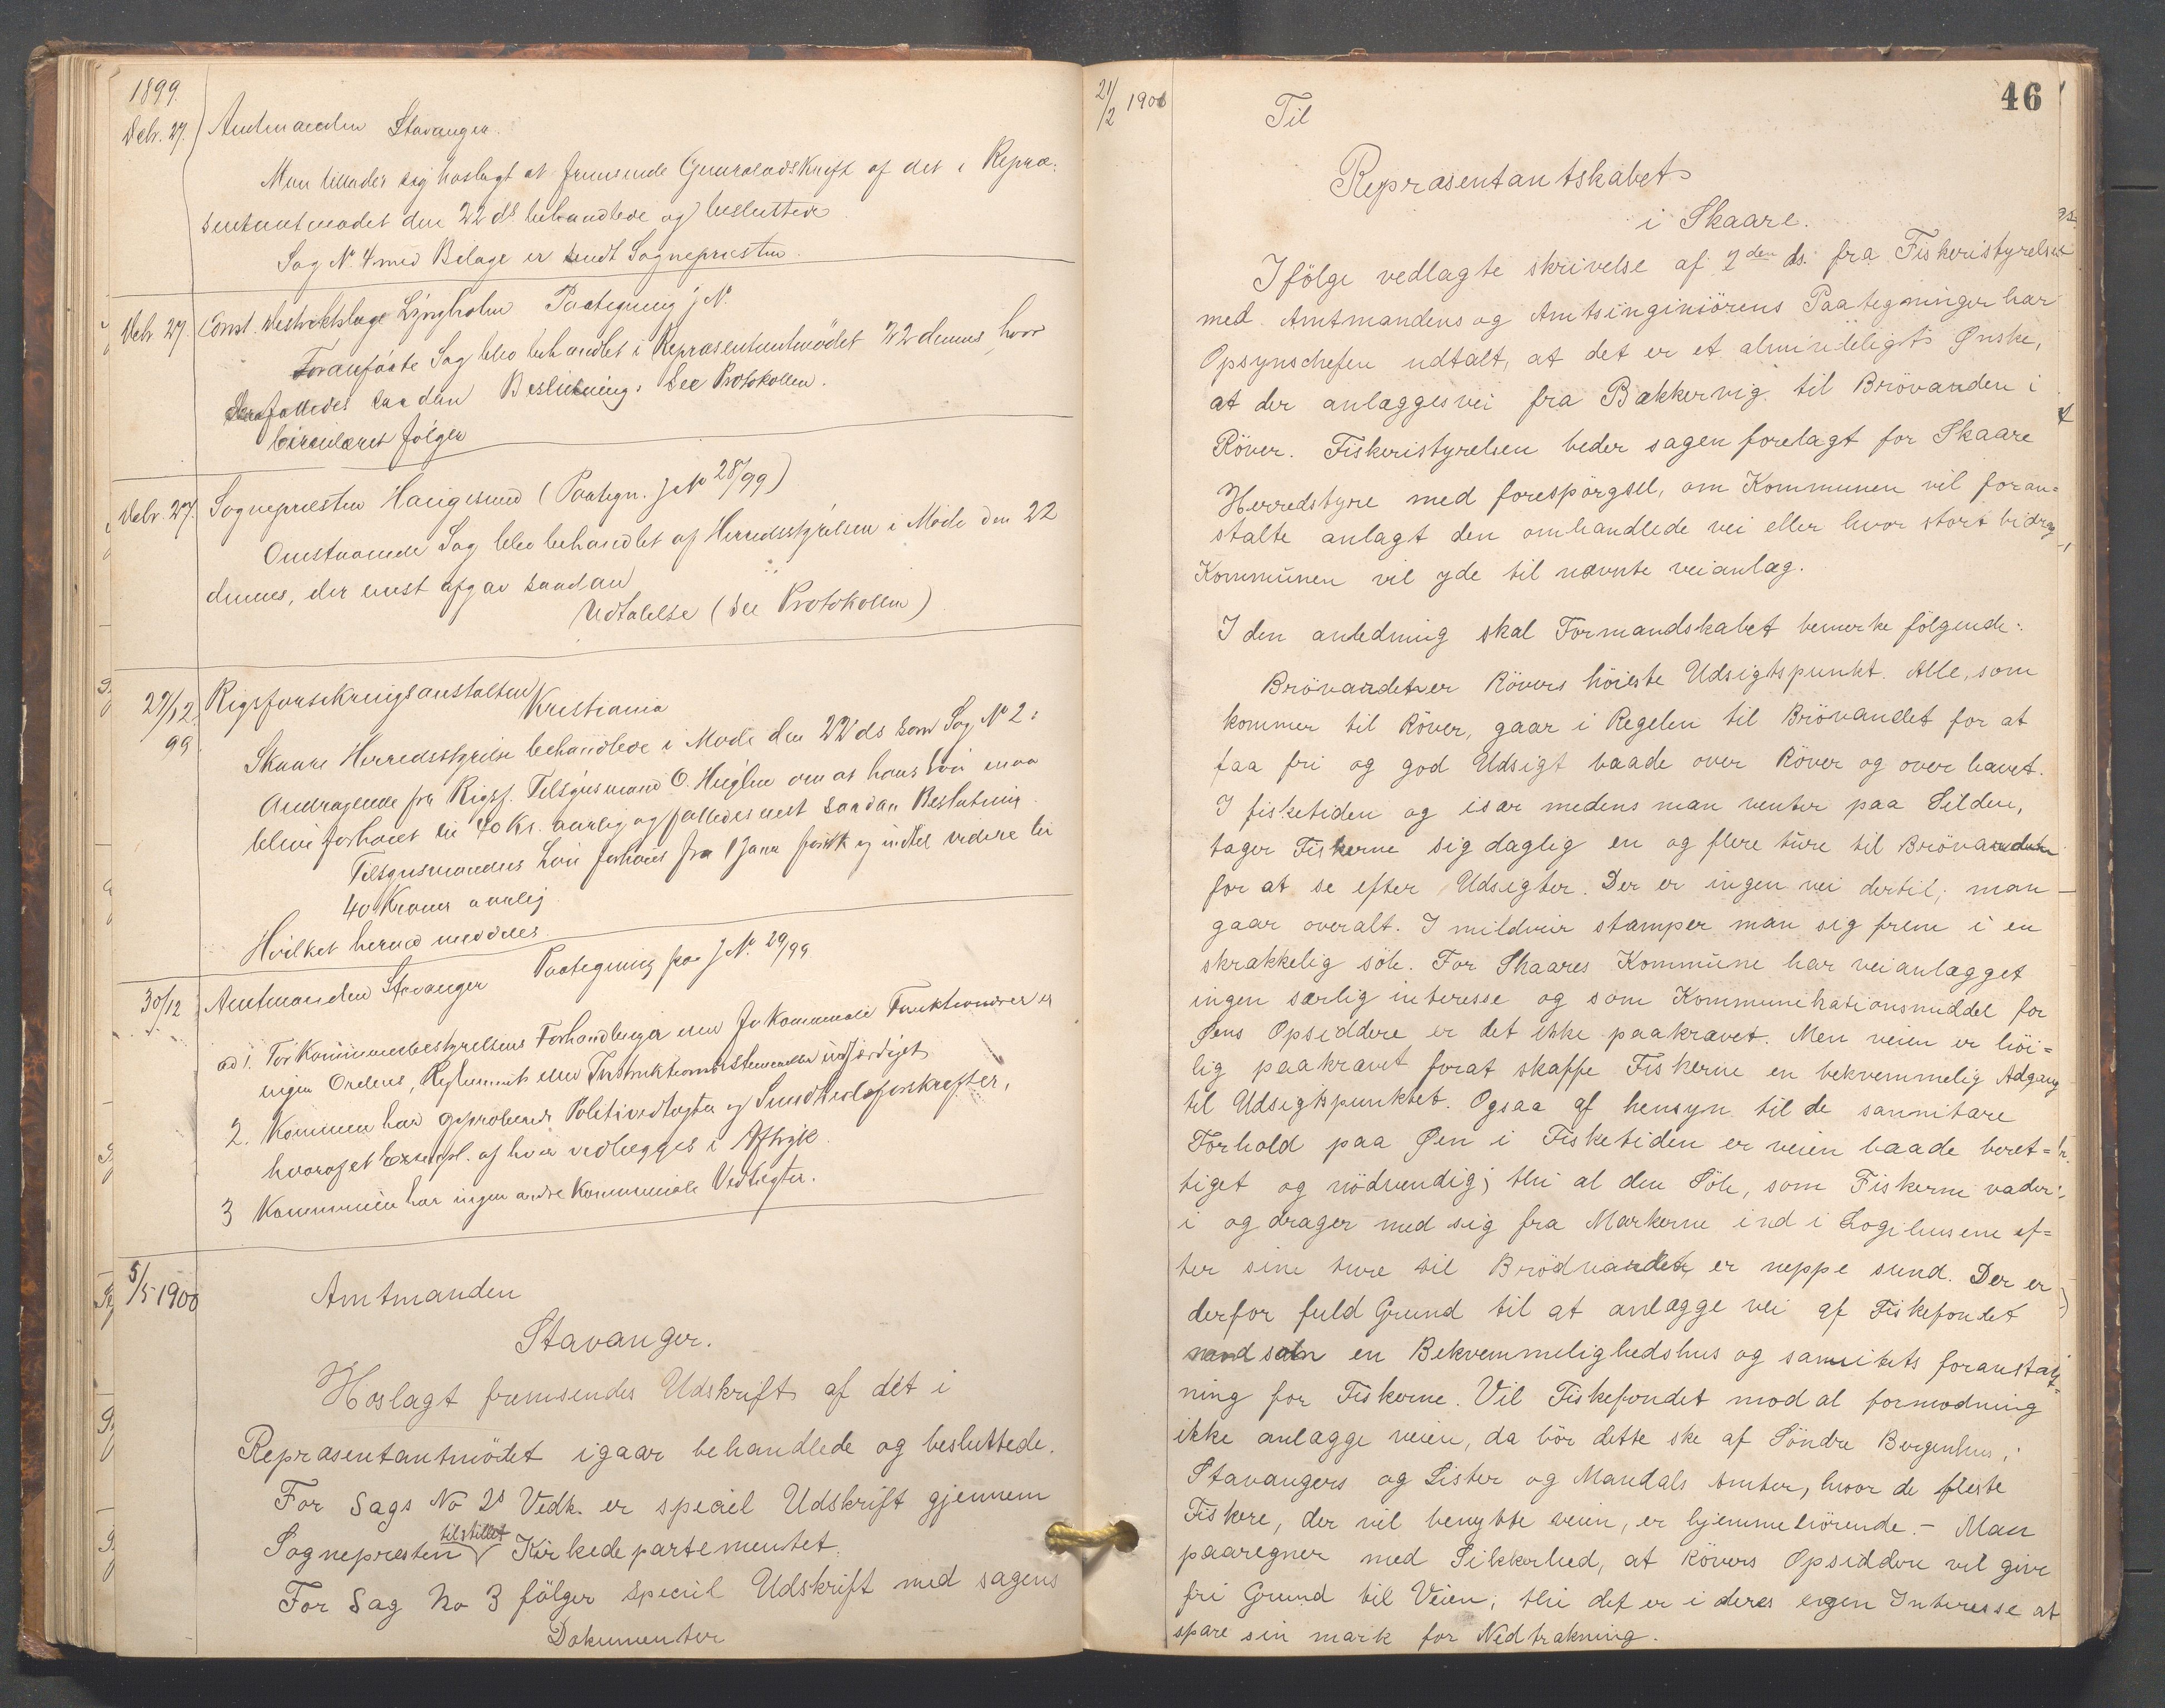 1899.
Debr. 27. Amtmanden Stavanger.
Man tillader sig hoslagt at fremsende Gjenpart af det i Repræ-
sentantmødet den 22 ds behandlede og besluttede
Sag No. 4 med Bilage er sendt Sognepresten.
Debr 27. Const. Distriktslæge Lyngholm Paategning j No.
Foranførte Sag blev behandlet i Repræsentantmødet 22 dennes, hvor
fattedes saadan Beslutning: See Protokollen.
Circulæret følger
Debr. 27. Sognepresten Haugesund (Paategn. J No 28/99)
Omstaaende Sag blev behandlet af Herredsstyrelsen i Møde den 22
dennes, der enst afgav saadan
Udtalelse (See Protokollen)
27/12 99 Rigsforsikringsanstalten Kristiania
Skaare Herredsstyrelse behandlede i Møde den 22 ds som Sag No 2:
Andragende fra Rigsf. Tilsynsmand O. Huglen om at hans Løn maa
blive forhøiet til 40 Kr. aarlig og fattedes enst saadan Beslutning.
Tilsynsmandens Løn forhøies fra 1 Janr førstk og indtil videre til
40 Kroner aarlig
Hvilket herved meddeles.
30/12 Amtmanden Stavanger Paategning paa J No. 29/99
ad 1. For Kommunebestyrelsens Forhandlinger eller for Kommunale Funktionærer er
ingen Ordens, Reglements eller Instruktionsbestemmelser udfærdiget
2. Kommunen har approberede Politivedtægter og Sundhedsforskrifter,
hvoraf et Exempl. af hver vedlægges i Aftryk.
3 Kommunen har ingen andre Kommunale Vedtægter.
5/5 1900 Amtmanden
Stavanger.
Hoslagt fremsendes Udskrift af det i
Repræsentantmödet igaar behandlede og besluttede.
For Sags No 2s Vedk. er speciel Udskrift gjennem
tilstillet
Sognepresten Kirkedepartementet.
For Sag No 3 fölger speciel Udskrift med sagens
Dokumenter
46
21/2 1900 Til
Repræsentantskabet
i Skaare.
Ifölge vedlagte skrivelse af 2den ds. fra Fiskeristyrelsen
med Amtmandens og Amtsinginiörens Paategninger har
Opsynschefen udtalt, at det er et almindeligt Ønske,
at der anlægges vei fra Bakkervig til Brövarden i
Röver. Fiskeristyrelsen beder sagen forelagt for Skaare
Herredstyre med forespörgsel, om Kommunen vil foran-
stalte anlagt den omhandlede vei eller hvor stort bidrag
Kommunen vil yde til nævnte veianlæg.
I den anledning skal Formandskabet bemerke fölgende:
Brövardeter Rövers höieste Udsigtspunkt. Alle, som
kommer til Röver, gaar i Regelen til Brövandet for at
faa fri og god Udsigt baade over Röver og over havet.
I fisketiden og især medens man venter paa Silden,
tager Fiskerne sig daglig en og flere ture til Brövarden
for at se efter Udsigter. Der er ingen vei dertil; man
gaar overalt. I mildveir stamper man sig frem i en
skrækkelig söle. For Skaares Kommune har veianlægget
ingen særlig interesse og som Kommunikationsmiddel for
Øens Opsiddere er det ikke paakrævet. Men veien er höi-
lig paakrævet forat skaffe Fiskerne en bekvemmelig Adgang
til Udsigtspunktet. Ogsaa af hensyn til de sannitære
Forhold paa Øen i Fisketiden er veien baade beret-
tiget og nödvendig; thi al den Söle, som Fiskerne vader
i og drager med sig fra Markerne ind i Logihusene ef-
ter sine ture til Brödvarden er neppe sund. Der er
derfor fuld Grund til at anlægge vei af Fiskefondet
som en Bekvemmelighedshus og sanitets foranstalt-
ning for Fiskerne. Vil Fiskefondet mod al formodning
ikke anlægge veien, da bör dette ske af Söndre Bergenhus,
Stavangers og Lister og Mandals Amter, hvor de fleste
Fiskere, der vil benytte veien, er hjemmehörende. - Man
paaregner med Sikkerhed, at Rövers Opsiddere vil give
fri Grund til Veien; thi det er i deres egen Interesse at
spare sin mark for Nedtrakning.